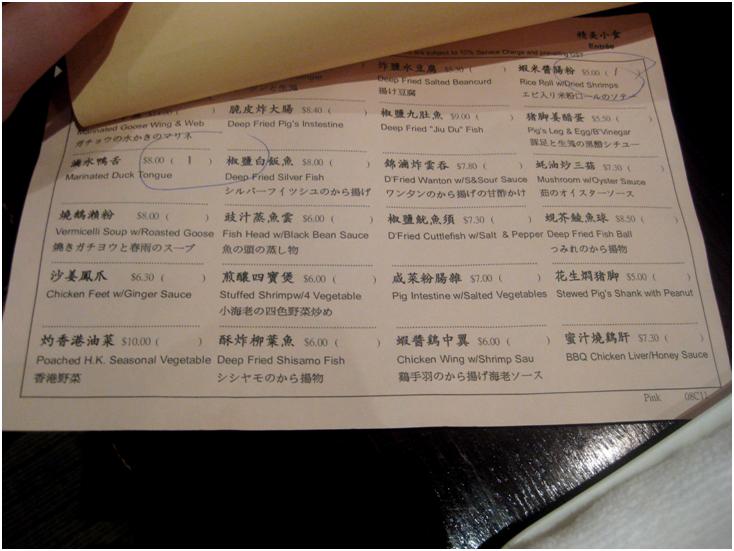 精美小食
Entrée
are subject to 10% Service Charge and prevailing GST
炸鹽水豆腐 $5.30 ( )
Deep Fried Salted Beancurd
揚げ豆腐
蝦米醬腸粉 $5.00 ( 1 )
Rice Roll w/Dried Shrimps
エビ入り米粉ロールのソテー
Marinated Goose Wing & Web
ガチョウの水かきのマリネ
脆皮炸大腸 $8.40 ( )
Deep Fried Pig's Instestine
椒鹽九肚魚 $9.00 ( )
Deep Fried "Jiu Du" Fish
豬脚姜醋蛋 $5.50 ( )
Pig's Leg & Egg/B'Vinegar
豚足と生薑の黒酢シチュー
滷水鴨舌 $8.00 ( 1 )
Marinated Duck Tongue
椒鹽白飯魚 $8.00 ( )
Deep Fried Silver Fish
シルバーフイツシユのから揚げ
錦滷炸雲吞 $7.80 ( )
D'Fried Wanton w/S&Sour Sauce
ワンタンのから揚げの甘酢かけ
蚝油炒三菇 $7.30 ( )
Mushroom w/Oyster Sauce
茹のオイスターソース
燒鵝瀨粉 $8.00 ( )
Vermicelli Soup w/Roasted Goose
燒きガチヨウと春雨のスープ
豉汁蒸魚雲 $6.00 ( )
Fish Head w/Black Bean Sauce
魚の頭の蒸し物
椒鹽魷魚須 $7.30 ( )
D'Fried Cuttlefish w/Salt & Pepper
蜆芥鯪魚球 $8.50 ( )
Deep Fried Fish Ball
つみれのから揚物
沙姜鳳爪 $6.30 ( )
Chicken Feet w/Ginger Sauce
煎釀四寶煲 $6.00 ( )
Stuffed Shrimpw/4 Vegetable
小海老の四色野菜炒め
咸菜粉腸雜 $7.00 ( )
Pig Intestine w/Salted Vegetables
花生燜猪脚 $5.00 ( )
Stewed Pig's Shank with Peanut
灼香港油菜 $10.00 ( )
Poached H.K. Seasonal Vegetable
香港野菜
酥炸柳葉魚 $6.00 ( )
Deep Fried Shisamo Fish
シシヤモのから揚物
蝦醬鷄中翼 $6.00 ( )
Chicken Wing w/Shrimp Sau
鶏手羽のから揚げ海老ソース
蜜汁燒鷄肝 $7.30 ( )
BBQ Chicken Liver/Honey Sauce
Pink 08C11